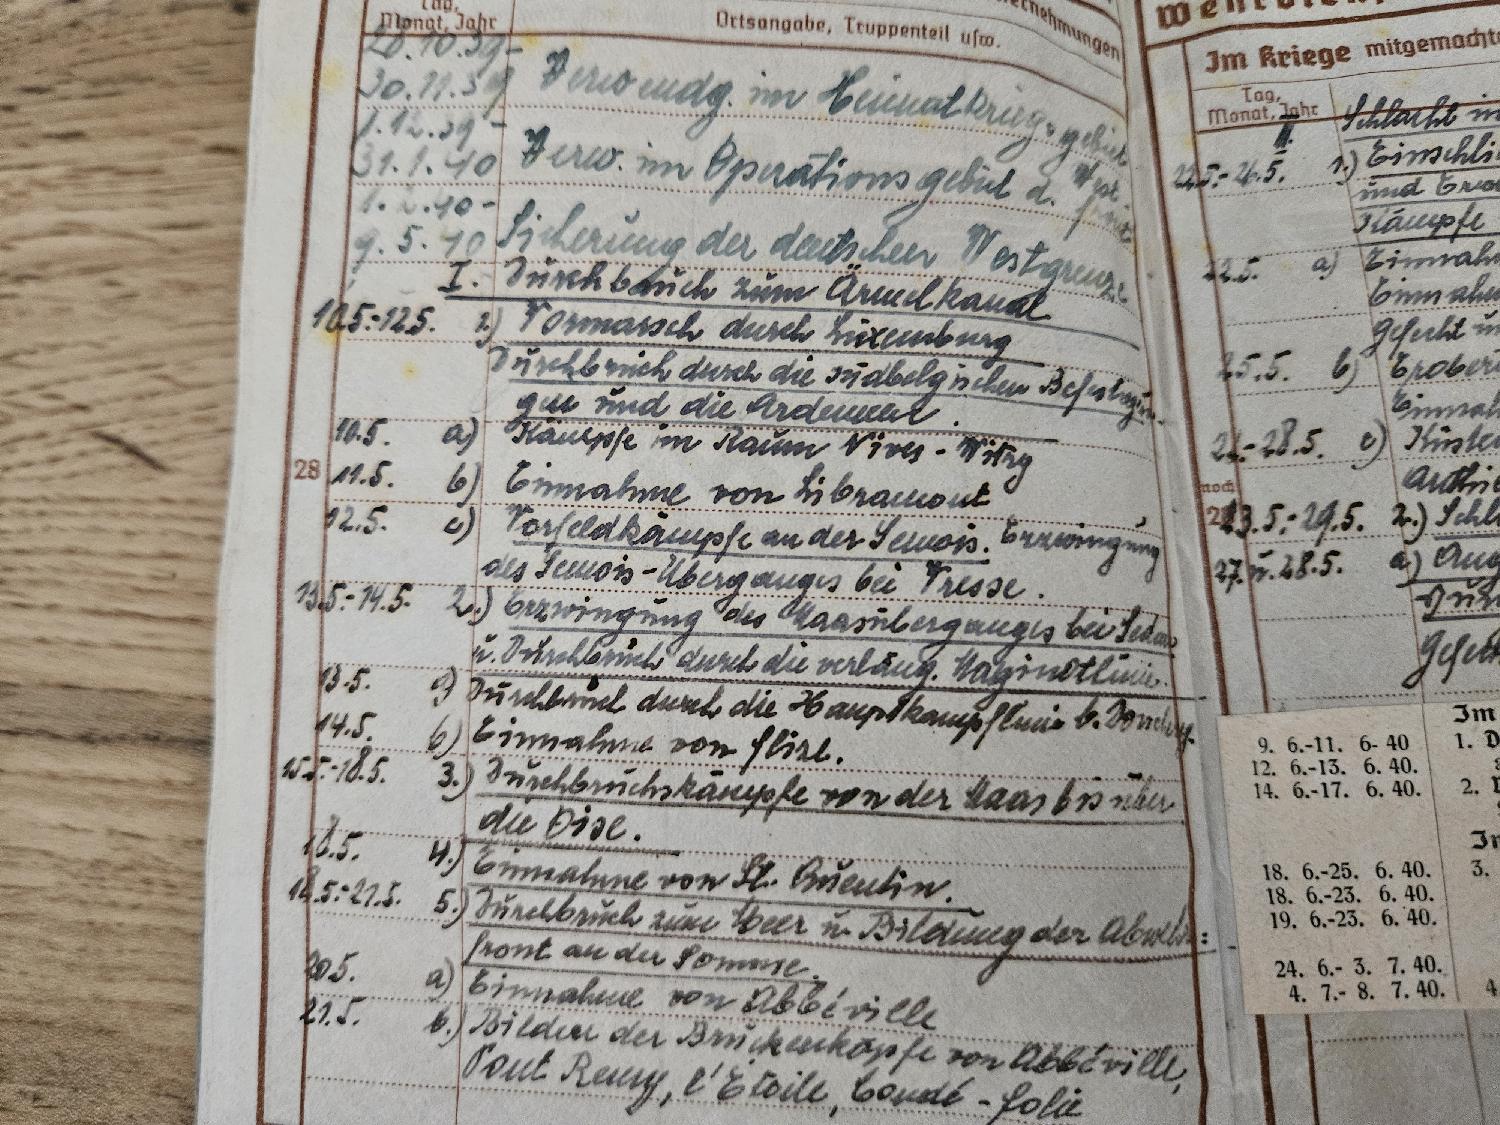 Tag,
Monat, Jahr
Ortsangabe, Truppenteil usw.
28.10.39-
30.11.39 Verwendg. im Heimatkriegsgebiet
1.12.39-
31.1.40 Verw. im Operationsgebiet d. Westfront
1.2.40-
9.5.40 Sicherung der deutschen Westgrenze
I. Durchbruch zum Ärmelkanal
10.5.-12.5. 1.) Vormarsch durch Luxemburg
Durchbruch durch die südbelgischen Befestigun-
gen und die Ardennen.
10.5. a) Kämpfe im Raum Nives - Witry
28
11.5. b) Einnahme von Libramont
12.5. c) Vorfeldkämpfe an der Semois. Erzwingung
des Semois-Überganges bei Bresse.
13.5.-14.5. 2.) Erzwingung des Maasüberganges bei Sedan
u. Durchbruch durch die verläng. Maginotlinie.
13.5. a) Durchbruch durch die Hauptkampflinie b. Donchery.
14.5. b) Einnahme von Flize.
15.5.-18.5. 3.) Durchbruchskämpfe von der Maas bis über
die Oise.
18.5. 4.) Einnahme von St. Quentin.
18.5.-21.5. 5.) Durchbruch zum Meer u. Bildung der Abwehr:
front an der Somme.
20.5. a) Einnahme von Abbéville
21.5. b.) Bilden der Brückenköpfe von Abbéville,
Pont Remy, l'Étoile, Condé - folie
Im Kriege mitgemachte
Tag,
Monat, Jahr
II. Schlacht in
22.5.-26.5. 1.) Einschli
und
Kämpfe
22.5. a) Einnahm
Einnahm
Gefecht u
25.5. b) Erober
Einnah
28.5. c) Küsten
noch
23.5.-29.5. 2.) Schl
27. u. 28.5. a)
Gefech
Im
9. 6.-11. 6. 40 1. D
12. 6.-13. 6. 40.
14. 6.-17. 6. 40. 2.
18. 6.-25. 6. 40. 3.
18. 6.-23. 6. 40.
19. 6.-23. 6. 40.
24. 6.- 3. 7. 40.
4. 7.- 8. 7. 40. 4